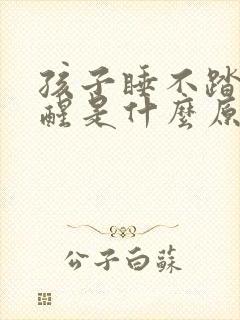 孩子睡不踏
醒是什麼原
公子白蘇